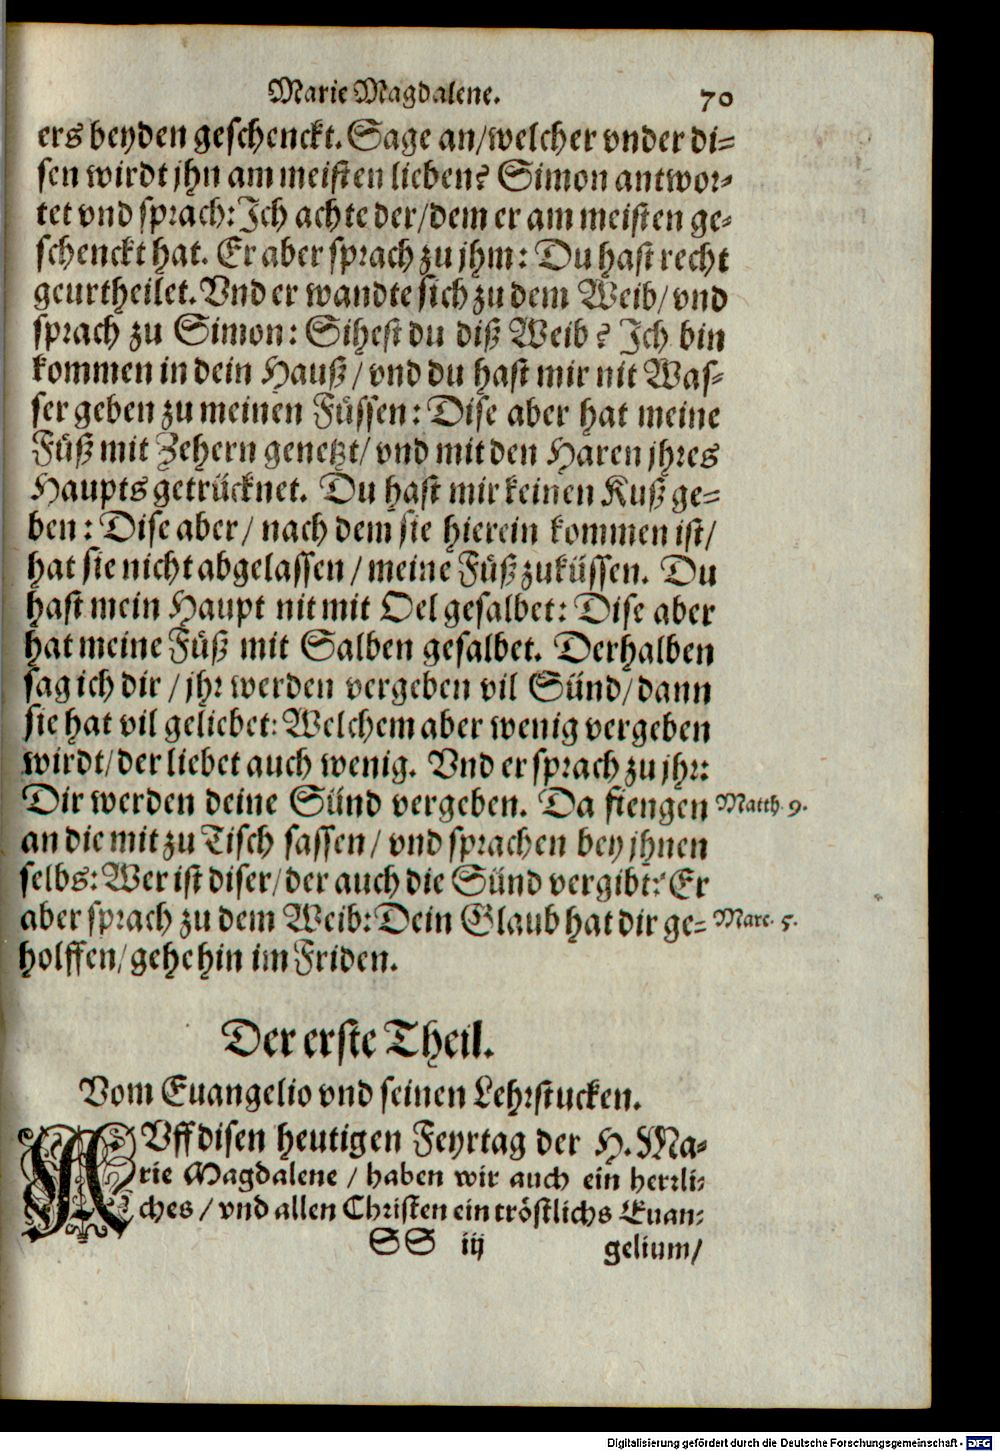 Marie Magdalene. 70
ers beyden geschenckt. Sage an/welcher vnder di-
sen wirdt jhn am meisten lieben? Simon antwor-
tet vnd sprach: Ich achte der/dem er am meisten ge-
schenckt hat. Er aber sprach zu jhm: Du hast recht
geurtheilet. Vnd er wandte sich zu dem Weib/ vnd
sprach zu Simon: Sihest du diß Weib? Ich bin
kommen in dein Hauß/ vnd du hast mir nit Was-
ser geben zu meinen Füssen: Dise aber hat meine
Füß mit Zehern genetzt/ vnd mit den Haren jhres
Haupts getrücknet. Du hast mir keinen Kuß ge-
ben: Dise aber/ nach dem sie hierein kommen ist/
hat sie nicht abgelassen/ meine Füß zuküssen. Du
hast mein Haupt nit mit Oel gesalbet: Dise aber
hat meine Füß mit Salben gesalbet. Derhalben
sag ich dir/ jhr werden vergeben vil Sünd/ dann
sie hat vil geliebet: Welchem aber wenig vergeben
wirdt/ der liebet auch wenig. Vnd er sprach zu jhr:
Dir werden deine Sünd vergeben. Da fiengen Matth. 9.
an die mit zu Tisch sassen/ vnd sprachen bey jhnen
selbs: Wer ist diser/ der auch die Sünd vergibt? Er
aber sprach zu dem Weib: Dein Glaub hat dir ge- Marc. 5.
holffen/ gehe hin im Friden.
Der erste Theil.
Vom Euangelio vnd seinen Lehrstucken.
AVff disen heutigen Feyrtag der H. Ma-
rie Magdalene/ haben wir auch ein herrli-
ches/ vnd allen Christen ein tröstlichs Euan-
SS iij gelium/
Digitalisierung gefördert durch die Deutsche Forschungsgemeinschaft - DFG